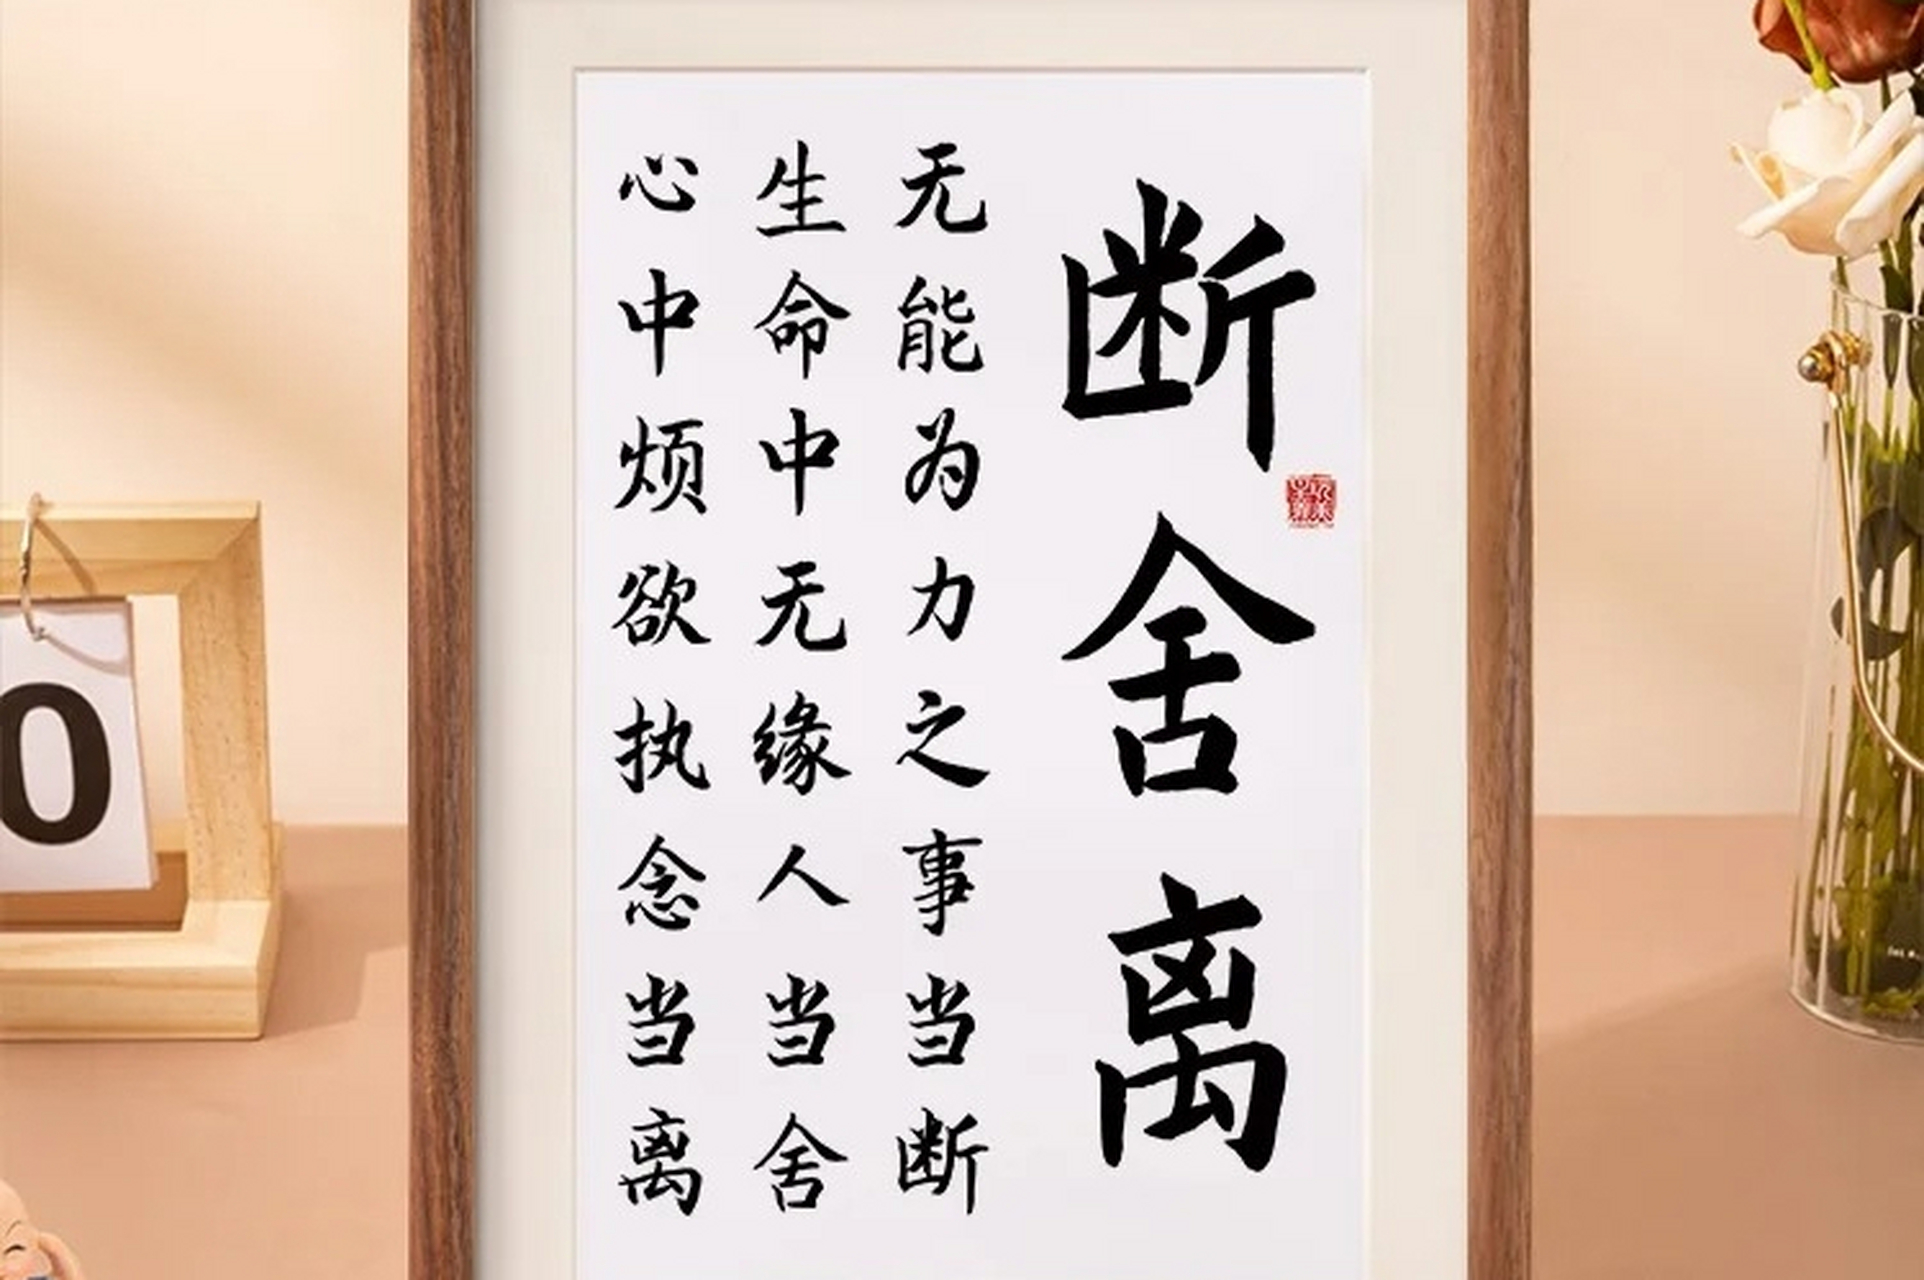 断舍离
无能为力之事当断
生命中无缘人当舍
心中烦欲执念当离
0